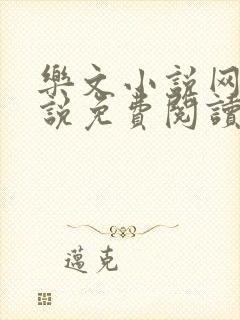 樂文小説网
説免費閱讀
邁克